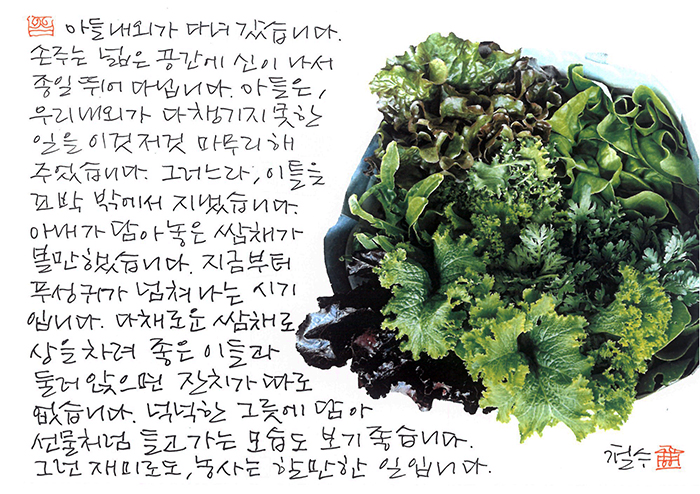 아들내외가 다녀 갔습니다.
손주는 넓은 공간에 신이 나서
종일 뛰어 다닙니다. 아들은,
우리내외가 다 챙기지 못한
일을 이것저것 마무리 해
주었습니다. 그러느라, 이틀을
꼬박 밖에서 지냈습니다.
아내가 담아놓은 쌈채가
볼만했습니다. 지금부터
푸성귀가 넘쳐나는 시기
입니다. 다채로운 쌈채로
상을 차려 좋은 이들과
둘러 앉으면 잔치가 따로
없습니다. 넉넉한 그릇에 담아
선물처럼 들고 가는 모습도 보기 좋습니다.
그런 재미로도, 농사는 할만한 일입니다.
철수